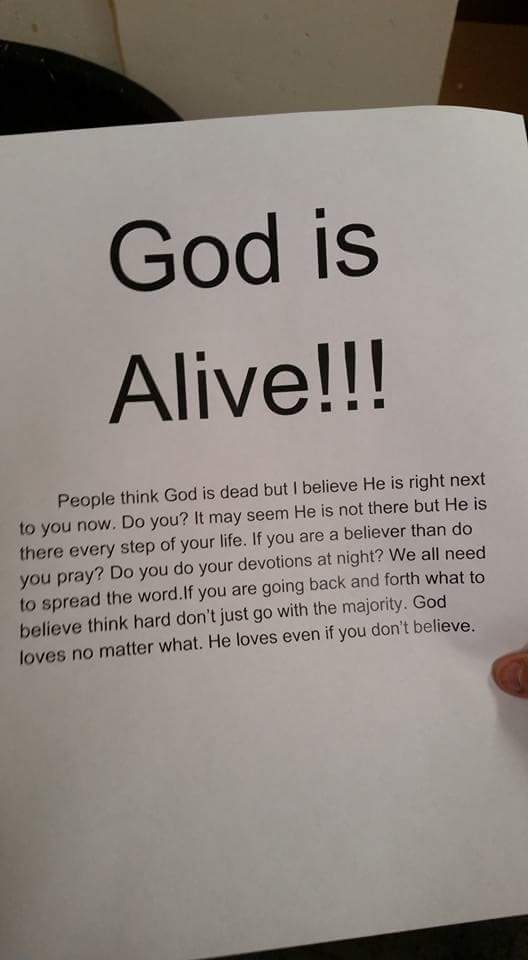 God is
Alive!!!
People think God is dead but I believe He is right next
to you now. Do you? It may seem He is not there but He is
there every step of your life. If you are a believer than do
you pray? Do you do your devotions at night? We all need
to spread the word.If you are going back and forth what to
believe think hard don't just go with the majority. God
loves no matter what. He loves even if you don't believe.